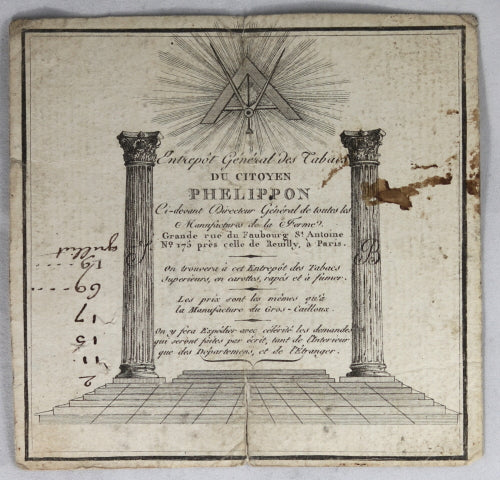 Entrepôt Général des Tabacs
DU CITOYEN
PHELIPPON
Ci-devant Directeur Général de toutes les
Manufactures de la Ferme,
Grande rue du Faubourg St. Antoine
No. 175 près celle de Reuilly, à Paris.
On trouvera à cet Entrepôt des Tabacs
Supérieurs, en carottes, rapés et à fumer.
Les prix sont les mêmes qu'à
la Manufacture du Gros-Caillou.
On y fera Expédier avec célérité les demandes
qui seront faites par écrit, tant de l'Interieur
que des Départemens, et de l'Etranger.
J
B
juillet
19
69
17
15
11
2